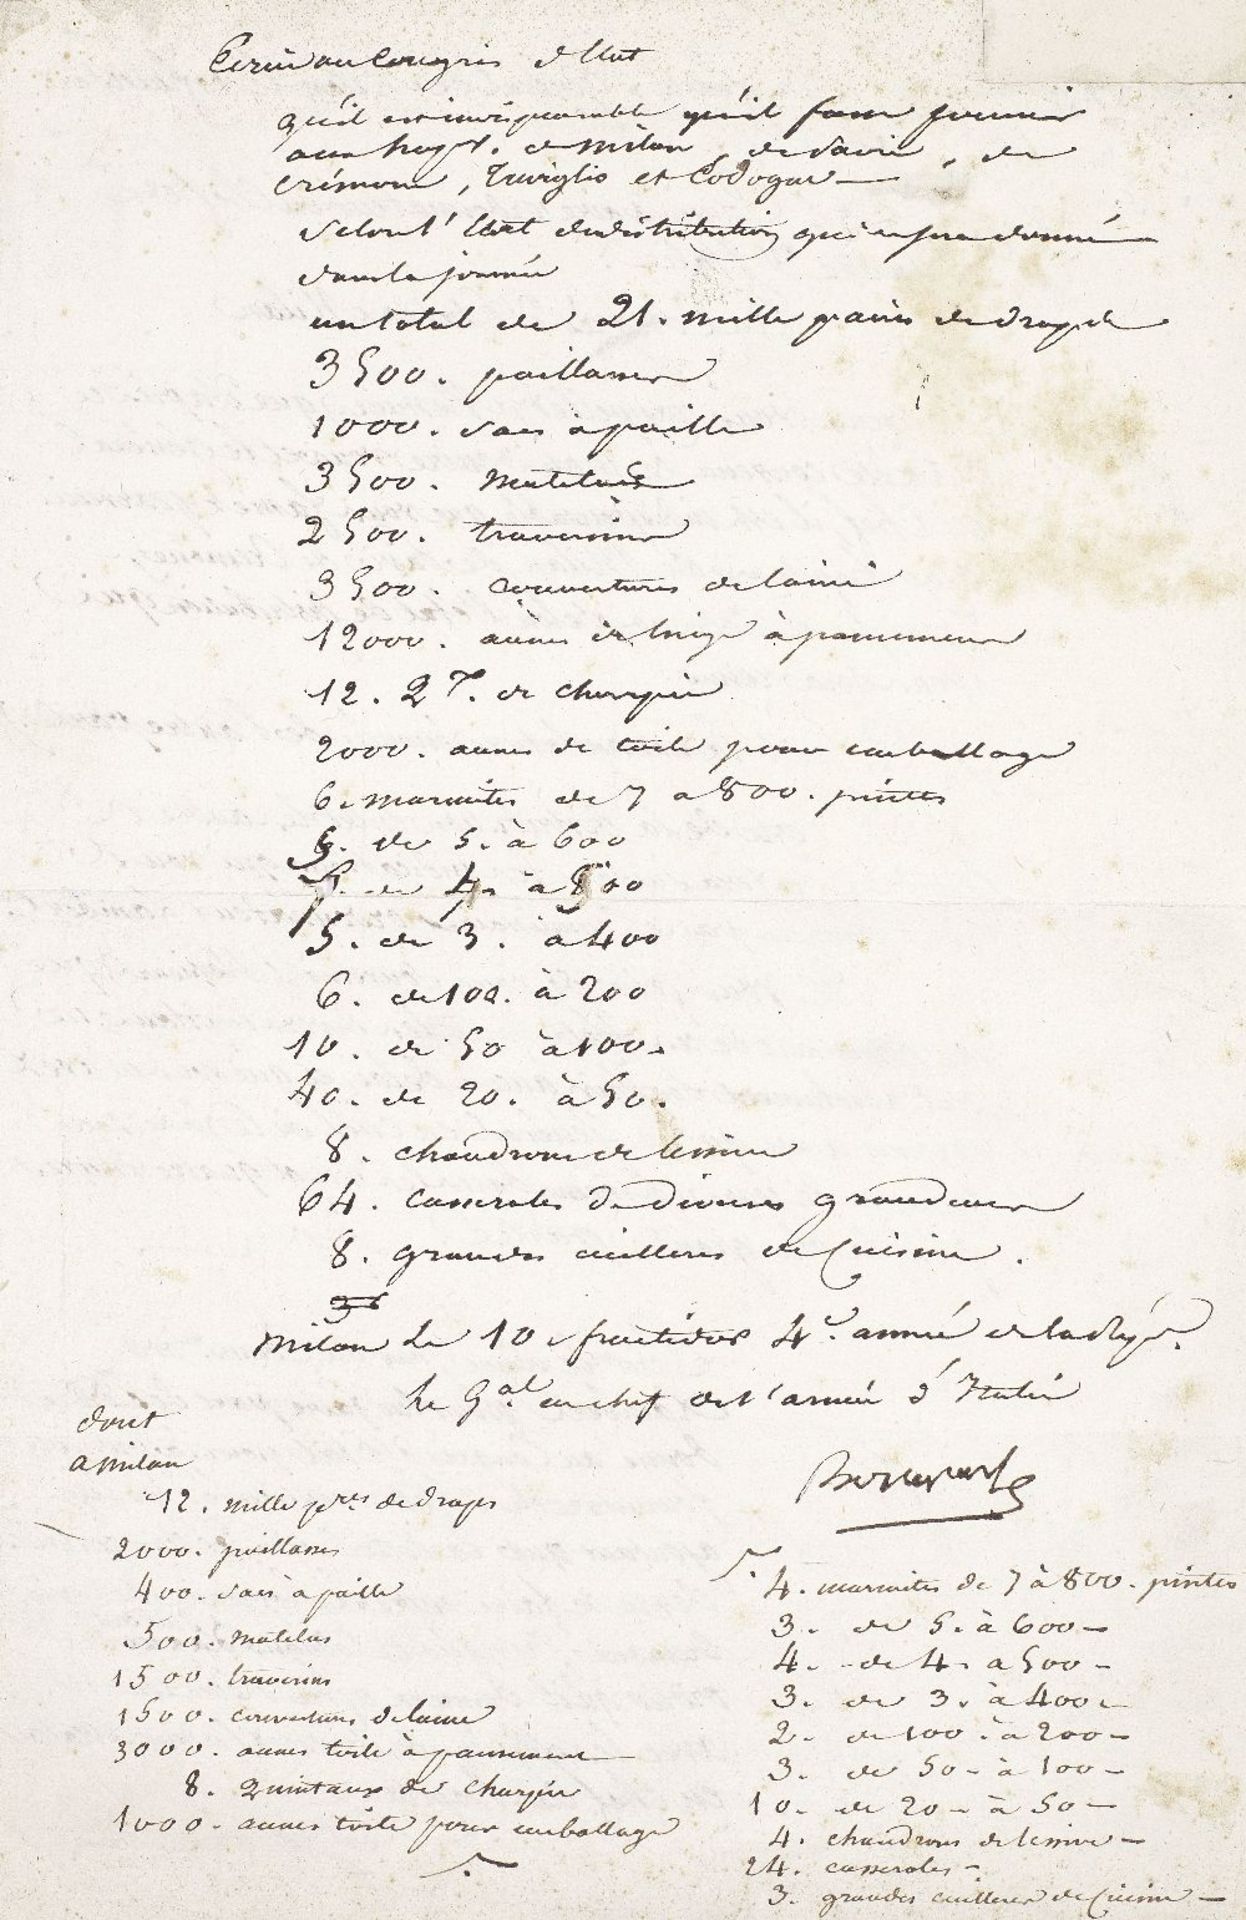 Ecrire au Congrès d'Etat
qu'il est indispensable qu'il fasse fournir
aux hopx. de Milan, de Pavie, de
Crémone, Treviglio et Codogno —
selon l'Etat de distribution qui en sera donné
dans la journée
un total de 21. mille paires de draps de
3500. paillasses
1000. sacs à paille
3500. Matelas
2500. traversins
3500. couvertures de laine
12000. aunes de linge à pansement
12. Qx. de charpie
2000. aunes de toile pour emballage
6. marmites de 7 a 800. pintes
5. de 5. à 600
5. de 4. à 500
5. de 3. à 400
6. de 100. à 200
10. de 50 à 100.
40. de 20. à 50.
8. chaudrons de lessive
64. casseroles de diverses grandeurs
8. grandes cuilleres de Cuisine.
Milan le 10 fructidor 4e. année de la Rép.
le Gal. en chef de l'armée d'Italie
Bonaparte
dont
a Milan
12. mille pres de draps
2000. paillasses
400. sacs a paille
500. matelas
1500. traversins
1500. couvertures de laine
3000. aunes toile à pansement
8. Quintaux de charpie
1000. aunes toile pour emballage
4. marmites de 7 à 800. pintes
3. de 5. à 600 —
4. de 4. a 500 —
3. de 3. à 400 —
2. de 100. à 200 —
3. de 50 - à 100 —
10. de 20 - à 50 —
4. chaudrons de lessive —
24. casseroles —
3. grandes cuilleres de Cuisine —